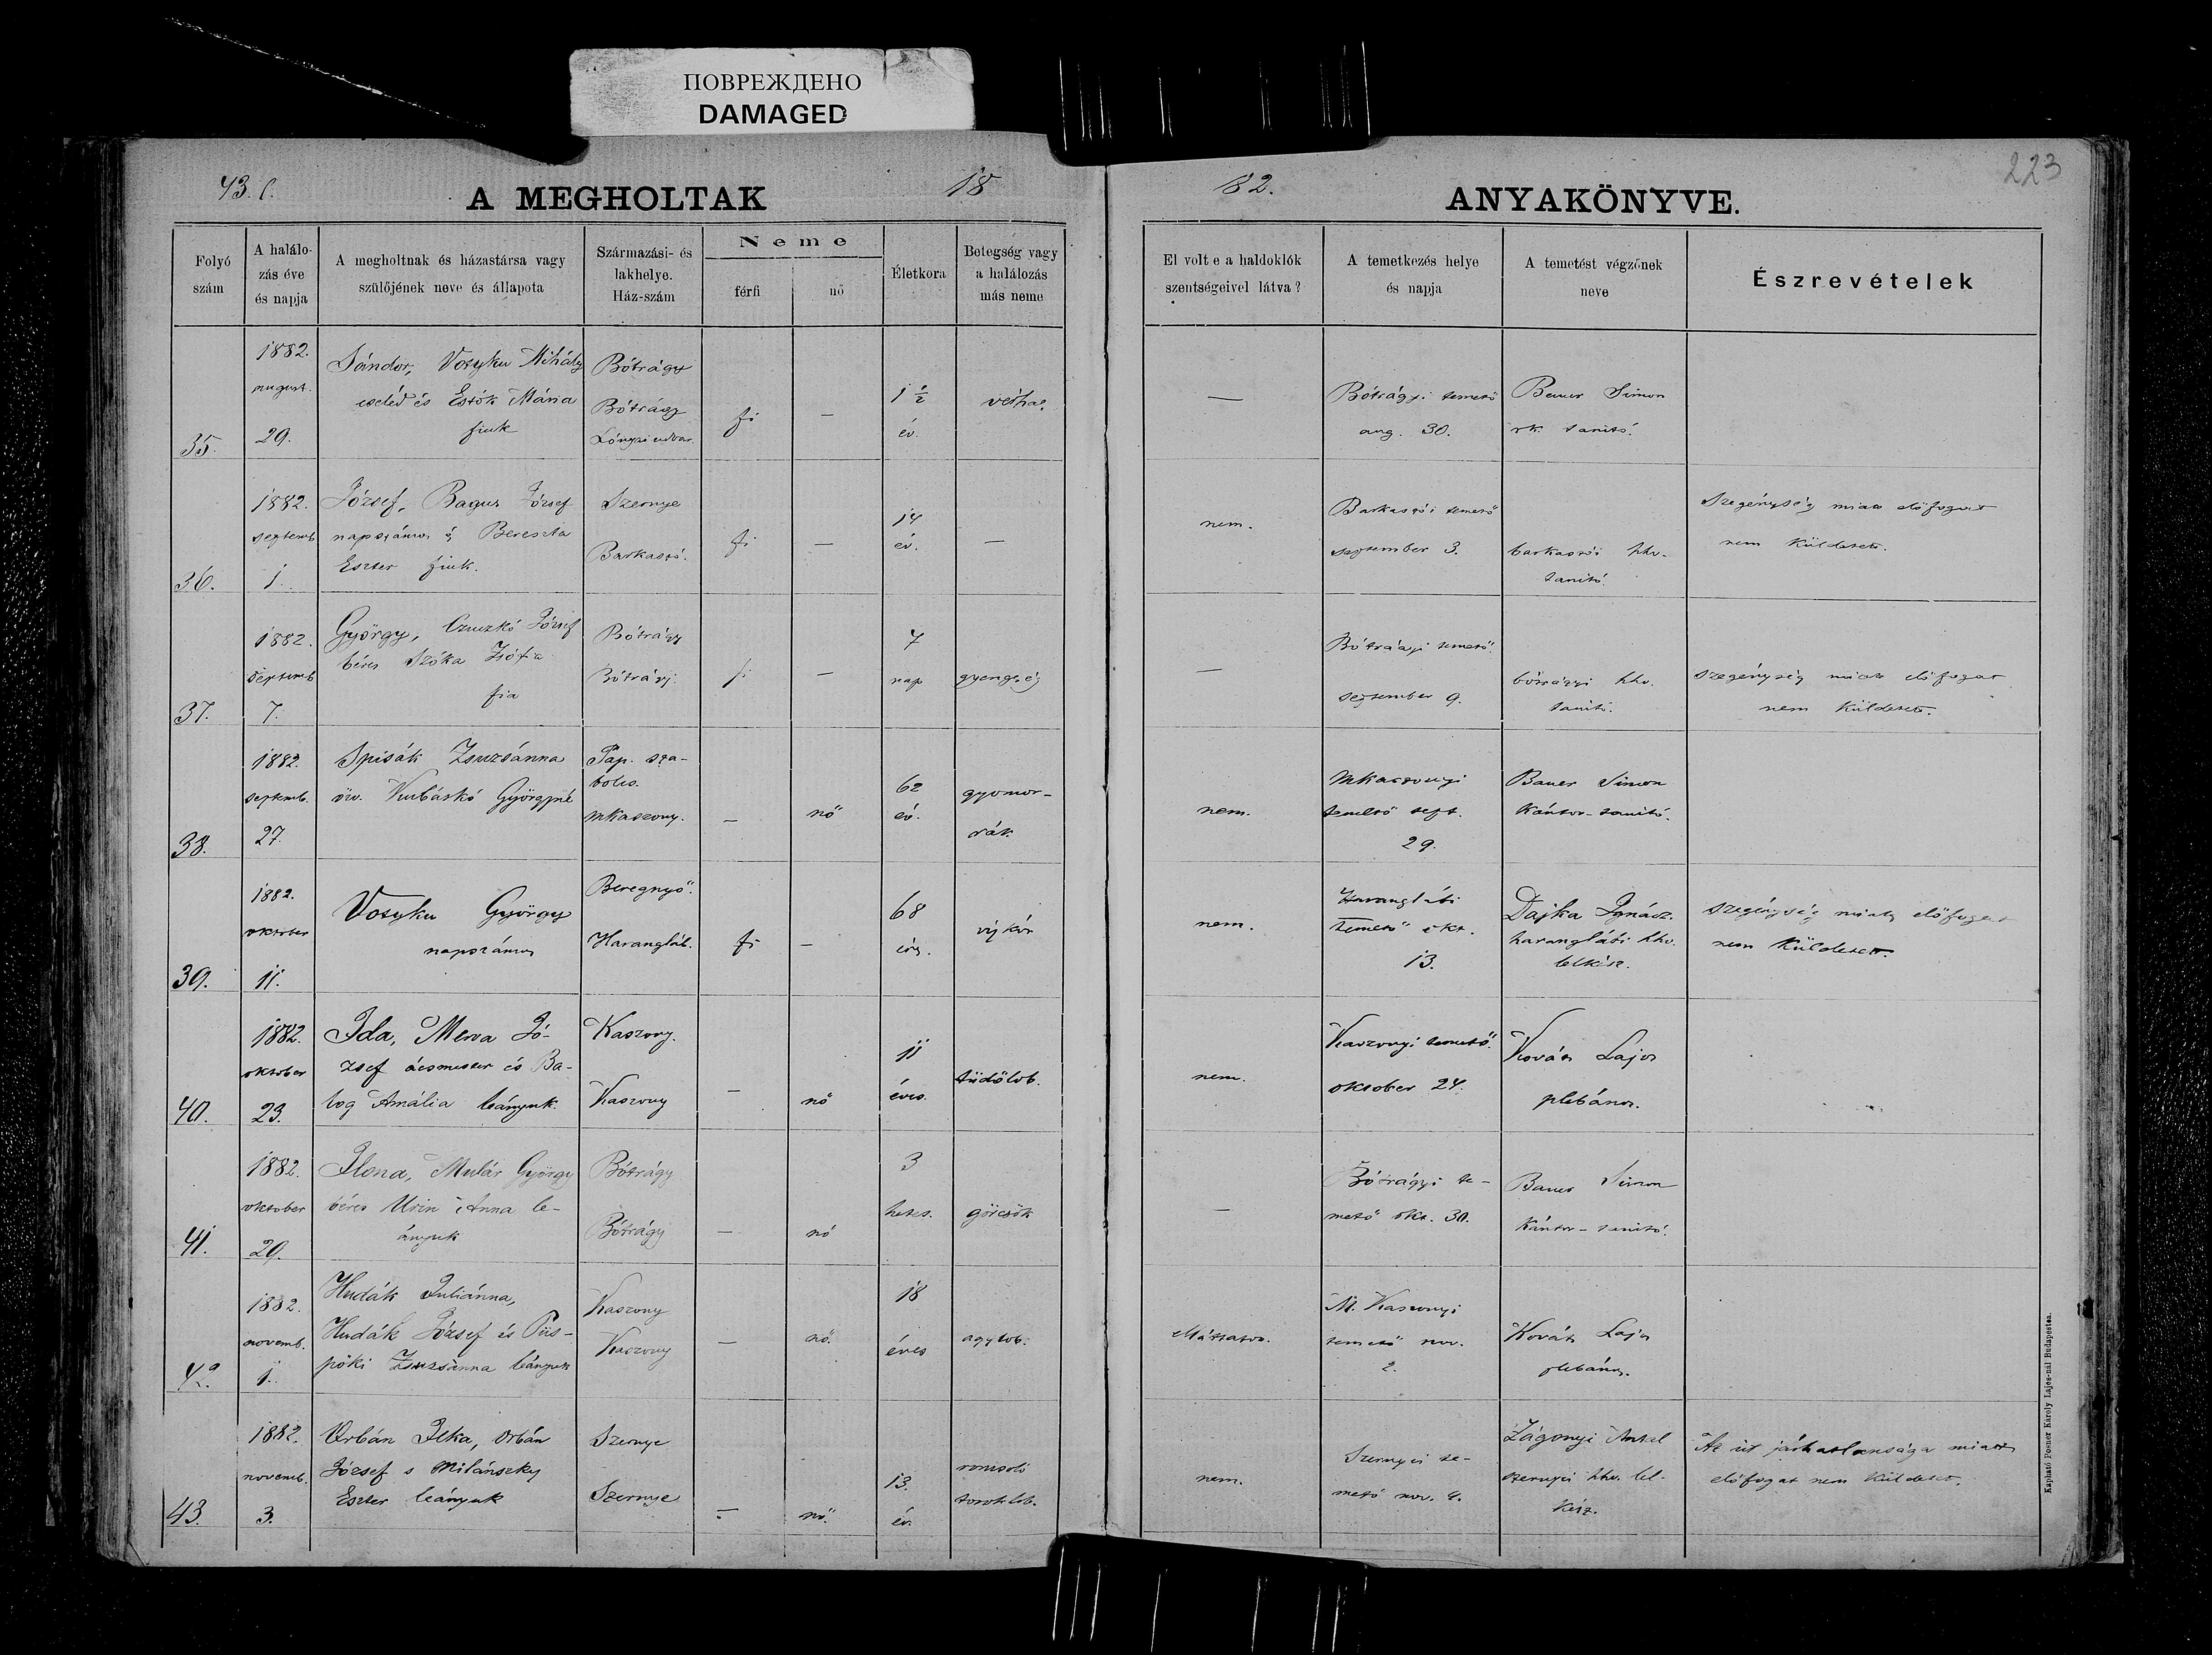 ПОВРЕЖДЕНО
DAMAGED
43. l.
A MEGHOLTAK
18
82.
ANYAKÖNYVE.
223
Folyó szám
A halálo-
zás éve
és napja
A megholtnak és házastársa vagy
szülőjének neve és állapota
Származási- és
lakhelye.
Ház-szám
Neme
férfi
nő
Életkora
Betegség vagy
a halálozás
más neme
El volt e a haldoklók
szentségeivel látva?
A temetkezés helye
és napja
A temetést végzőnek
neve
Észrevételek
35.
1882.
august.
29.
Sándor, Vosyku Mihály
cseléd és Estók Mária
fiuk
Bótrágy
Bótrágy
Lónyai udvar.
fi
—
1 ½
év.
vérhas.
—
Bótrágyi temető
aug. 30.
Bauer Simon
rk. tanitó.
36.
1882.
septemb
1.
József, Bagus József
napszámos és Bereszta
Eszter fiuk.
Szernye
Barkaszó.
fi
—
14
év.
—
nem.
Barkaszói temető
september 3.
barkaszói hhv.
tanitó.
Szegénység miatt előfogat
nem küldetett.
37.
1882.
septemb
7.
György, József
béres Szóka Zsófia
fia
Bótrágy
Bótrágy.
fi
—
7
nap
gyengeség
—
Bótrágyi temető.
september 9.
bótrágyi hhv.
tanitó.
szegénység miatt előfogat
nem küldetett.
38.
1882.
septemb.
27.
Spisák Zsuzsánna
özv. Kubáskó Györgyné
Pap. sza-
bolcs.
mkaszony.
—
nő
62
év.
gyomor-
rák
nem.
Mkaszonyi
temető sept.
29.
Bauer Simon
kántor-tanitó.
39.
1882.
oktober
11.
Vosyku György
napszámos
Beregnyő.
Harangláb.
fi
—
68
éves.
vizkór
nem.
Haranglábi
temető okt.
13.
Dajka Ignácz.
haranglábi hhv.
lelkész.
szegénység miatt előfogat
nem küldetett.
40.
1882.
oktober
23.
Ida, Merva Jó-
zsef ácsmester és Ba-
log Amália leányuk.
Kaszony.
Kaszony
—
nő
11
éves.
tüdőlob.
nem.
Kaszonyi temető.
oktober 24.
Kovács Lajos
plébános.
41.
1882.
oktober
29.
Ilona, Mulár György
béres Urin Anna le-
ányuk
Bótrágy
Bótrágy
—
nő
3
hetes.
görcsök
—
Bótrágyi te-
mető okt. 30.
Bauer Simon
kántor-tanitó.
42.
1882.
novemb.
1.
Hudák Juliánna,
Hudák József és Püs-
pöki Zsuzsánna leányuk
Kaszony
Kaszony
—
nő.
18
éves
agylob.
ellátatott.
M. Kaszonyi
temető nov.
2.
Kovács Lajos
plébános.
43.
1882.
novemb.
3.
Orbán Ilka, Orbán
József s Milánszky
Eszter leányuk
Szernye
Szernye
—
nő.
13.
év.
roncsoló
toroklob.
nem.
Szernyei te-
mető nov. 4.
Zágonyi Antal
szernyei hhv. lel-
kész.
Az út járhatlansága miatt
előfogat nem küldetett.
Kapható Posner Károly Lajos-nál Budapesten.